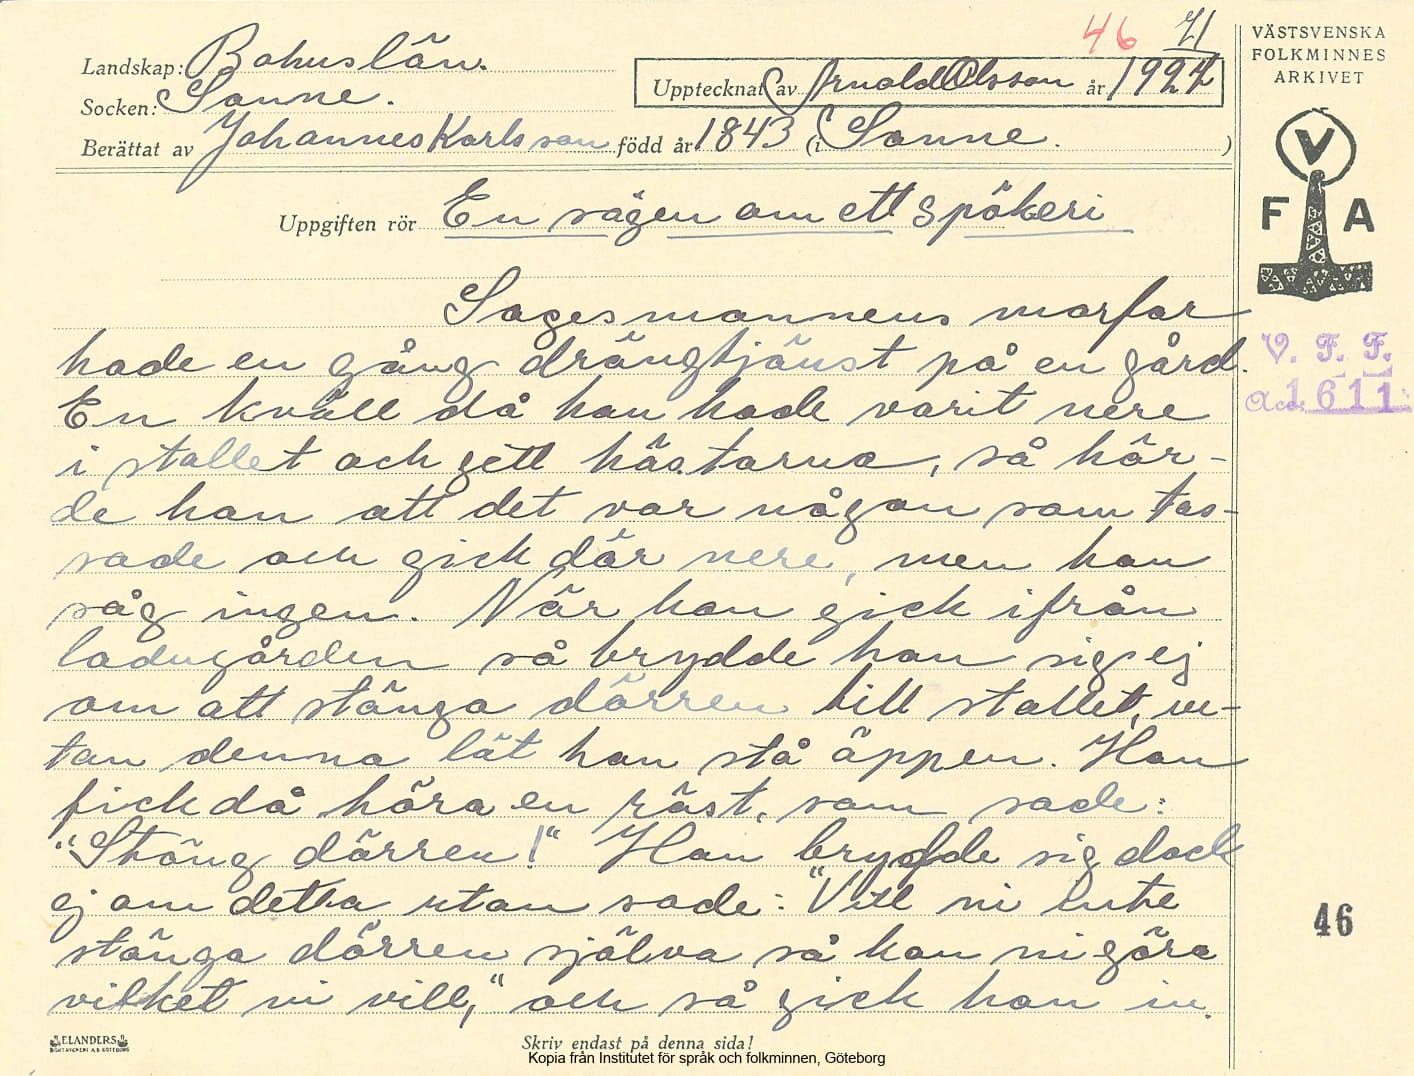 46 71
VÄSTSVENSKA
FOLKMINNES
ARKIVET
Landskap: Bohuslän.
Upptecknat av Arnold Olsson år 1927
Socken: Sanne.
Berättat av Johannes Karlsson född år 1843 (i Sanne. )
V
F A
Uppgiften rör En sägen om ett spökeri
Sagesmannens morfar
hade en gång drängtjänst på en gård.
En kväll då han hade varit nere
i stallet och gett hästarna, så hör-
de han att det var någon som tas-
sade och gick där nere, men han
såg ingen. När han gick ifrån
ladugården så brydde han sig ej
om att stänga dörren till stallet, u-
tan denna lät han stå öppen. Han
fick då höra en röst, som sade:
"Stäng dörren!" Han brydde sig dock
ej om detta utan sade: "Vill ni inte
stänga dörren själva så kan ni göra
vilket ni vill," och så gick han in.
V. F. F.
Acc. 1611
46
ELANDERS
BOKTRYCKERI A.B. GÖTEBORG
Skriv endast på denna sida!
Kopia från Institutet för språk och folkminnen, Göteborg